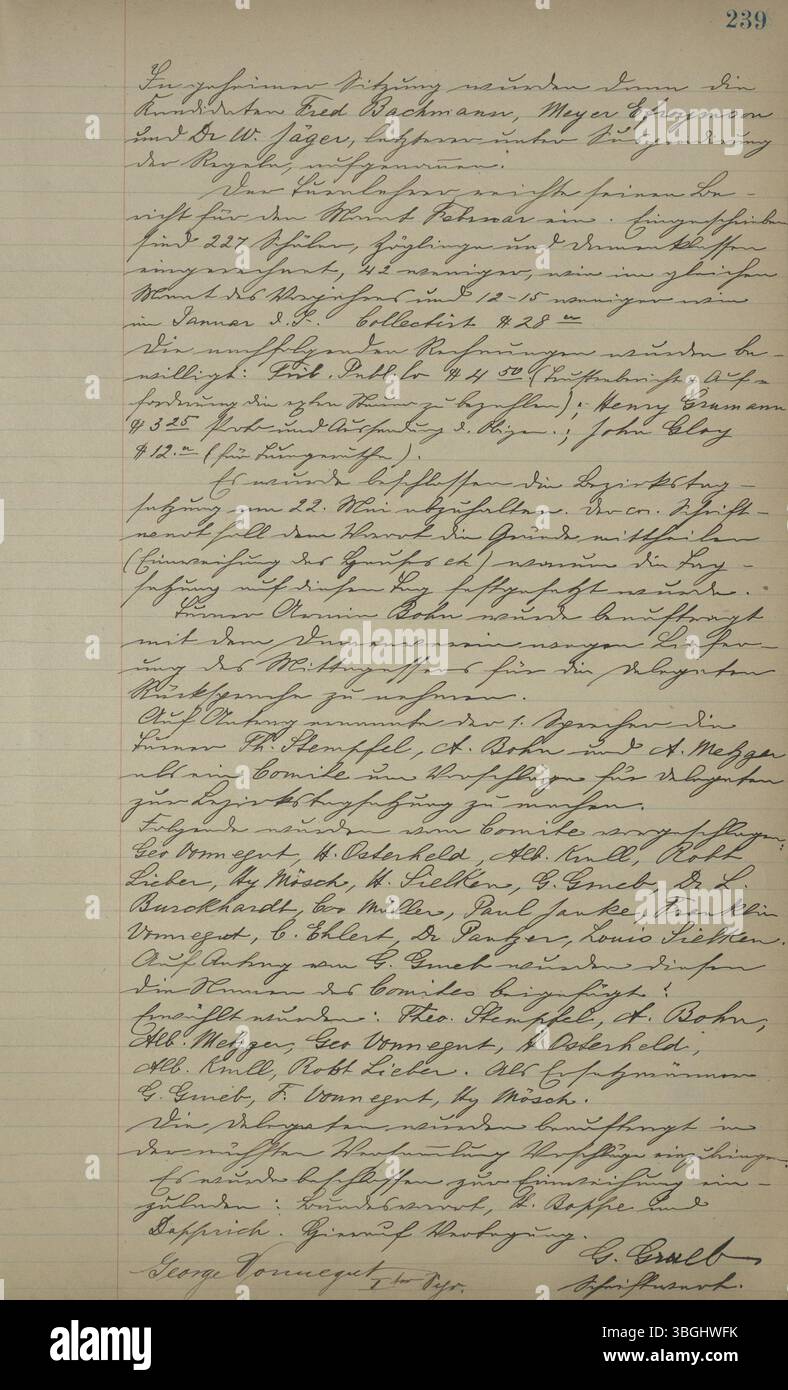 239
In geheimer Sitzung wurden dann die
Kandidaten Fred Bachmann, Meyer Efroymson
und Dr W. Jäger, letzterer unter Suspendierung
der Regeln, aufgenommen.
Der Turnlehrer reichte seinen Be-
richt für den Monat Februar ein. Eingeschrieben
sind 227 Schüler, Zöglinge und Damenklassen
eingerechnet, 42 weniger, wie im gleichen
Monat des Vorjahres und 12-15 weniger wie
im Januar d. J. Collectirt $28
Die nachfolgenden Rechnungen wurden be-
willigt: Trib. Publ. Co $4 50 (Turnerbericht & Auf-
forderung die Steuer zu bezahlen); Henry Gramann
$3 25 und Aussendung d. ; John Gloy
$12. (für Turngeräthe).
Es wurde beschlossen die Bezirkstag-
satzung am 22. Mai abzuhalten. Der cor. Schrift-
wart soll dem Vorort die Gründe mittheilen
(Einweihung des Hauses etc) warum die Tag-
satzung auf diesen Tag festgesetzt wurde.
Turner Armin Bohn wurde beauftragt
mit dem Damenverein wegen Liefer-
ung des Mittagessens für die Delegaten
Rücksprache zu nehmen.
Auf Antrag ernannte der 1. Sprecher die
Turner Th. Stempfel, A. Bohn und A. Metzger
als ein Comite um Vorschläge für Delegaten
zur Bezirkstagsatzung zu machen.
Folgende wurden vom Comite vorgeschlagen:
Geo Vonnegut, H. Osterheld, Alb. Krull, Robt
Lieber, Hy Mösch, H. Sielken, G. Graeb, Dr L.
Burckhardt, Geo Müller, Paul Janke, Franklin
Vonnegut, C. Ehlert, Dr Pantzer, Louis Sielken.
Auf Antrag von G. Graeb wurden diesen
die Namen des Comites beigefügt.
Erwählt wurden: Theo. Stempfel, A. Bohn,
Alb. Metzger, Geo Vonnegut, H Osterheld,
Alb. Krull, Robt Lieber. Als Ersatzmänner
G. Graeb, F. Vonnegut, Hy Mösch.
Die Delegaten wurden beauftragt in
der nächsten Versammlung Vorschläge einzubringen.
Es wurde beschlossen zur Einweihung ein-
zuladen: Bundesvorort, H. Boppe und
Dapprich. Hierauf Vertagung.
G. Graeb
George Vonnegut
Schriftwart.
alamy
Image ID: 3BGHWFK
www.alamy.com